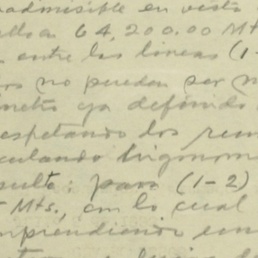 admisible en vista
a 64,200.00 Mts
entre las lineas (1-
no puedan ser m
ya definido
espetando los rum
culando trigonome
sulta: para (1-2)
Mts., con lo cual
mprendiendo en